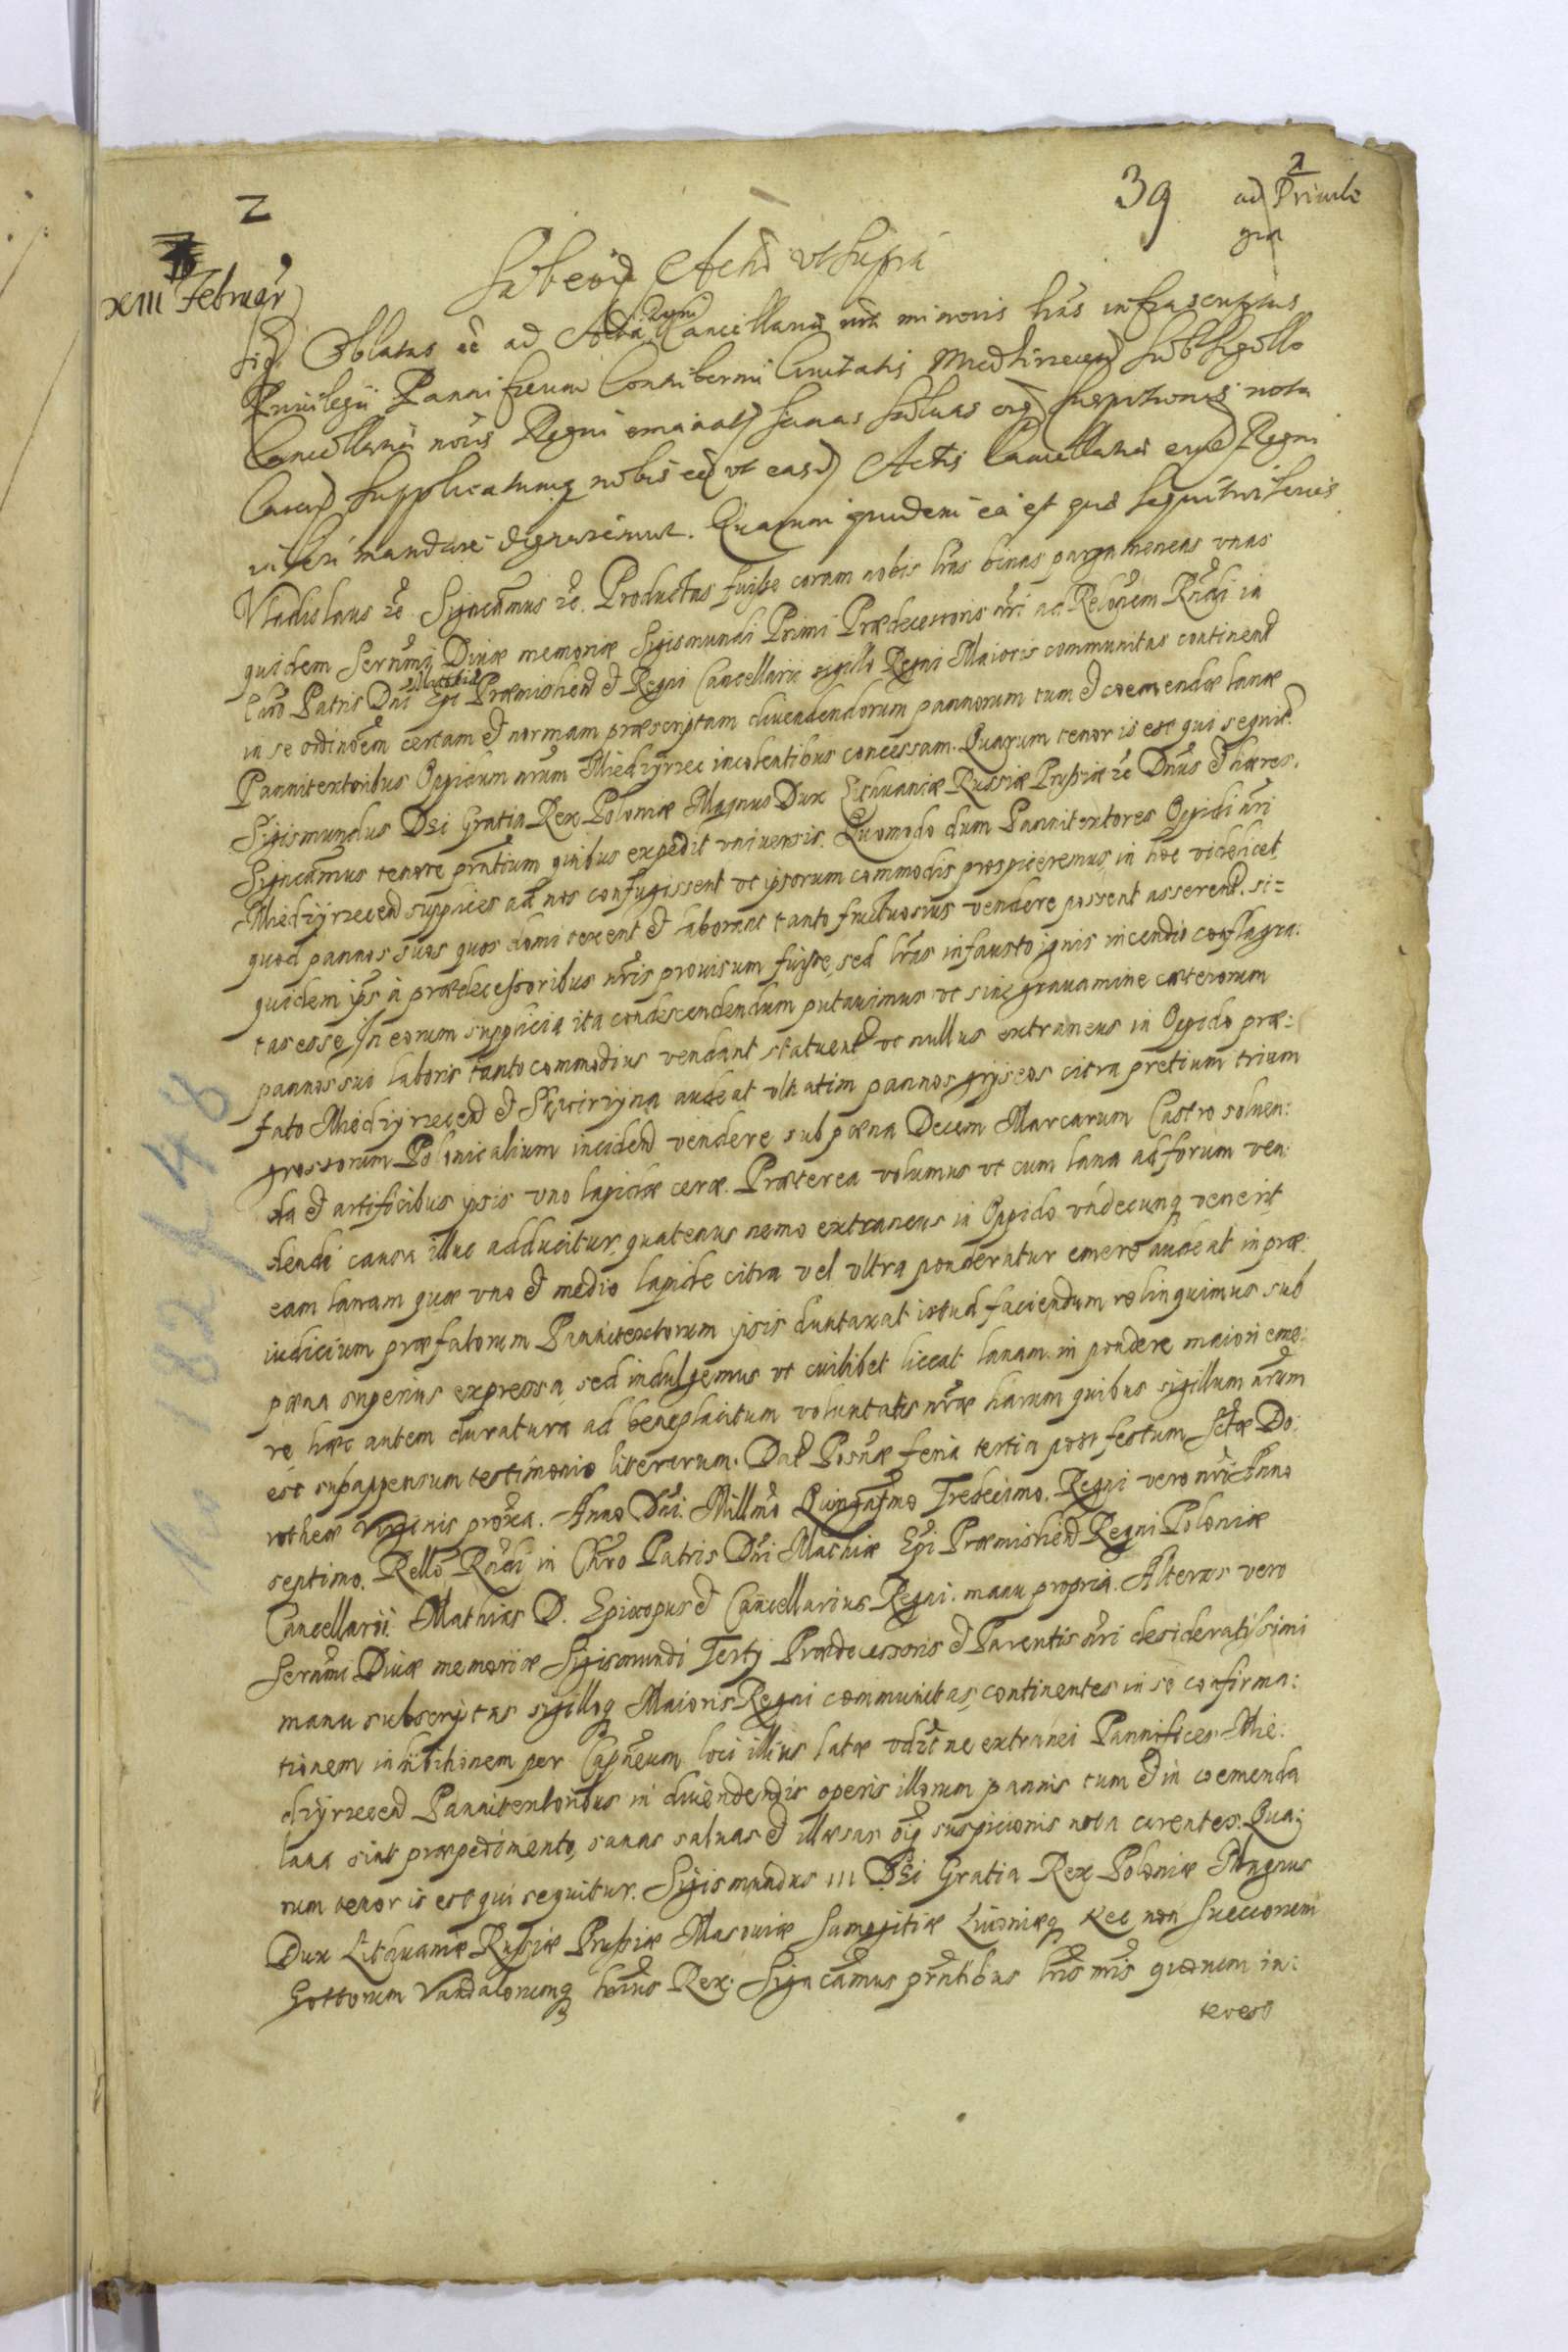 2
39
ad Privile
gia
XIII Februar
Actu ut supra
Oblatas ee ad Acta Regni Cancellariae minoris lras infrascriptas
Privilegii Pannificum Contubernii Civitatis sub Sigillo
Cancellariae Regni emanat sanas salvas suspitionis nota
Caren supplicatumq nobis ut easd Actis Cancellariae Regni
mandare dignaremur. Quarum quidem ea est quae sequitur series
Vladislaus &c. Significamus &c. Productas fuisse coram nobis lras binas pargameneas unas
quidem Serenmi Divae memoriae Sigismundi Primi Praedecessoris nri ac Relonem Rndi in
Chro Patris Dni Matthiae Epi Praemislien et Regni Cancellarii sigillo Regni Maioris communitas continend
in se ordinoem certam et normam praescriptam divendendorum pannorum tum et coemendae lanae
Pannitextoribus Oppidum nrum Miedzyrzec incolentibus concessam. Quarum tenor is est qui sequit.
Sigismundus Dei Gratia Rex Poloniae Magnus Dux Lithuaniae Russiae Prussiae &c Dnus et haeres.
Significamus tenore pntium quibus expedit universis. Quomodo dum Pannitextores Oppidi nri
Miedzyrzecen supplices ad nos confugissent ut ipsorum commodis prospiceremus, in hoc videlicet
quod pannos suos quos domi texent et laborant tanto fructuosius vendere possent asserend. si=
quidem ips à praedecessoribus nris provisum fuisse, sed lras infausto ignis incendio conflagra:
tas esse. In eorum supplicia ita condescendendum putavimus ut sine gravamine caeterorum
pannos sui laboris tanto commodius vendant statuend ut nullus extraneus in Oppido prae:
fato Miedzyrzecen et Skwirzyna audeat ulnatim pannos gryseos citra pretium trium
grossorum Polonicalium inciden vendere sub paena Decem Marcarum Castro solven:
da et artificibus ipsis uno lapide cerae. Praeterea volumus ut cum lana ad forum ven:
dendi causa illuc adducitur, quatenus nemo extraneus in Oppido undecunq venerit
eam lanam quae uno et medio lapide citra vel ultra ponderatur emere audeat in prae:
iudicium praefatorum Pannitextorum ipsis duntaxat istud faciendum relinquimus sub
paena superius expressa, sed indulgemus ut cuilibet liceat lanam in pondere maiori eme:
re, haec autem duratura ad beneplacitum voluntatis nrae harum quibus sigillum nrum
est subappensum testimonio literarum. Dat Posnae feria tertia post festum Sctae Do:
rotheae Virginis proxa. Anno Dni. Millmo Quingntmo Tredecimo. Regni vero nri Anno
septimo. Rello Rndi in Chro Patris Dni Mathiae Epi Praemislien Regni Poloniae
Cancellarii. Mathias D. Episcopus et Cancellarius Regni. manu propria. Alteras vero
Serenmi Divae memoriae Sigismundi Tertij Praedecessoris et Parentis nri desideratissimi
manu subscriptas sigilloq Maioris Regni communitas, continentes in se confirma:
tionem inhibitionem per Capneum loci illius latae vdzt ne extranei Pannifices Mie:
dzyrzecen Pannitextoribus in divendendis operis illorum pannis tum et in coemenda
lana sint praepedimento, sanas salvas et illaesas oiq suspicionis nota carentes. Qua:
rum tenor is est qui sequitur. Sigismundus III Dei Gratia Rex Poloniae Magnus
Dux Lithuaniae Russiae Prussiae Masoviae Samogitiae Livoniaeq Nec non Suecorum
Gottorum Vandalorumq hrius Rex. Significamus pntibus lris nris quorum in:
teres
No 182 K 48